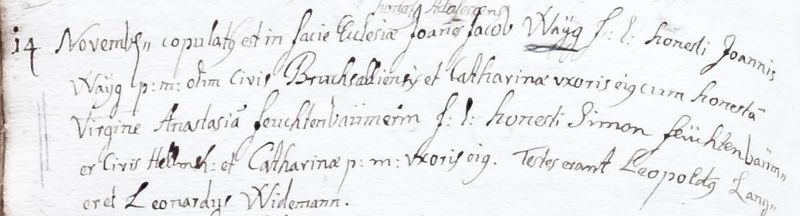 honestus Adolescens
14 Novembr„ copulatq est in facie Ecclesiæ Joanes Jacob Wayg f: l: honesti Joannis
Wayg p: m: olim Civis Bruchsalliensis et Catharinæ uxoris eiq cum honestâ
Virgine Anastasiâ feuchtenbaümerin f: l: honesti Simon feüchtenbaüm„
er Civis Helmsh: et Catharinæ p: m: uxoris eiq. Testes erant Leopoldq Lang„
er et Leonardq Widemann.